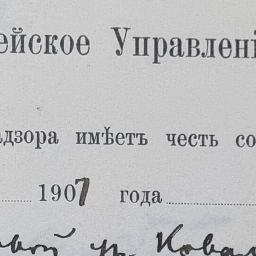 ейское Управлені
адзора имѣетъ честь со
1907 года